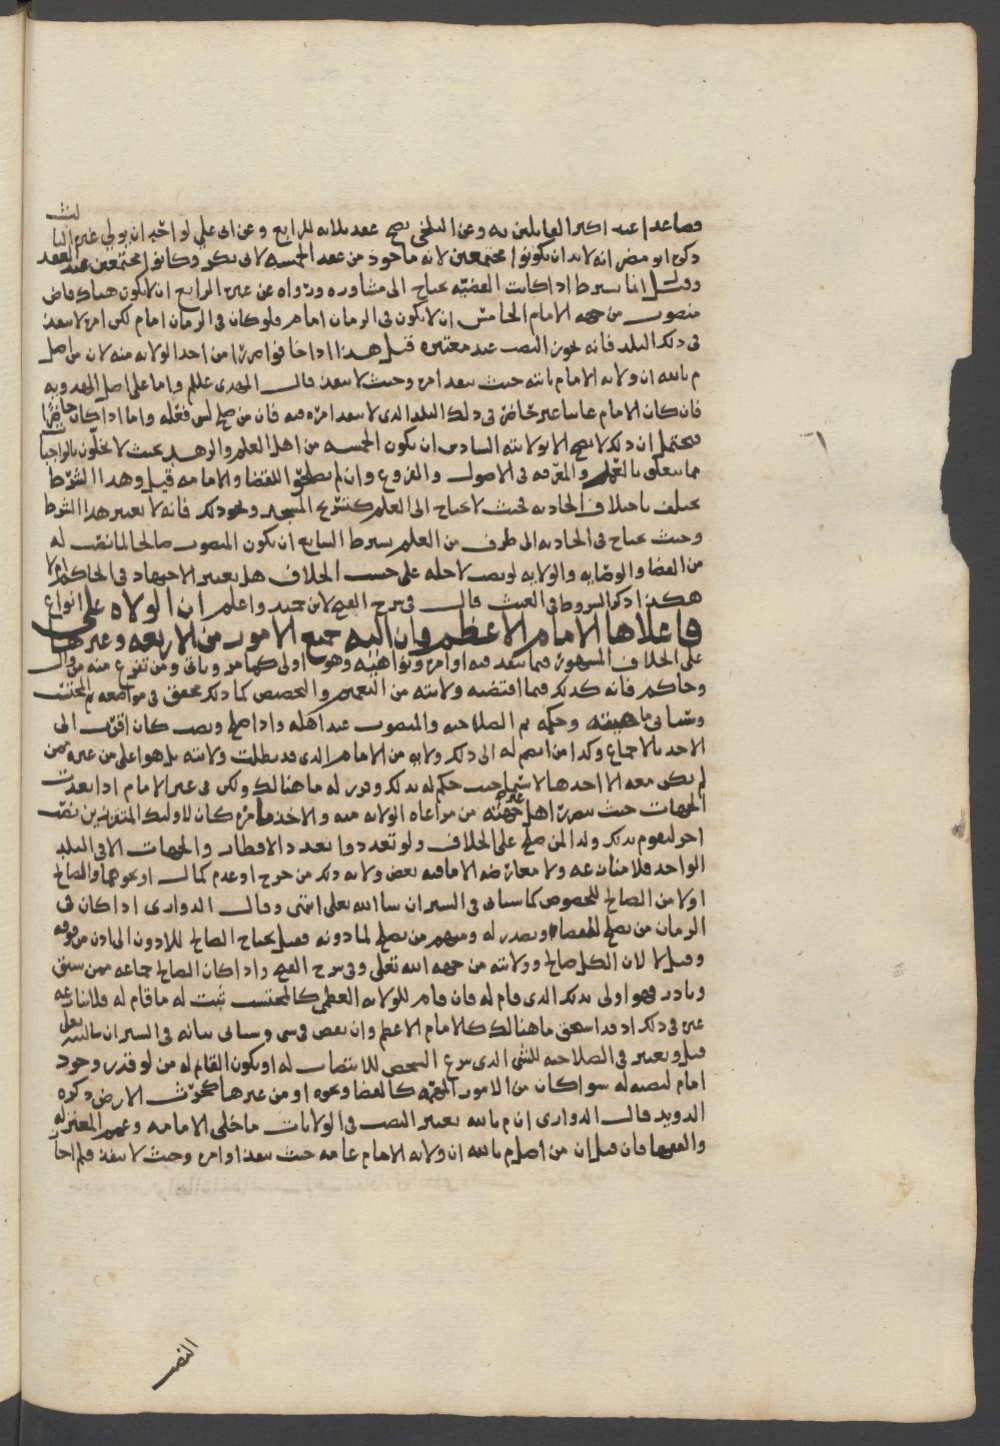 فصاعدا عند اكثر القايلين به وعن البلخي يصح عقد ثلاثه للرابع وعن ابي علي لو احد ان يولي غيره الثالث
ذكره ابو مضر انه لا بد ان يكونوا مجتمعين لانه ماخوذ من عقد الخمسه لابي بكر وكانوا مجتمعين عند العقد
وقيل انما يشترط اذا كانت القضيه تحتاج الى مشاوره ورواه عن غيره الرابع ان لا يكون هناك قاض
منصوب من جهه الامام الخامس ان لا يكون في الزمان امام فلو كان في الزمان امام لكن امره لا ينفذ
في ذلك البلد فانه يجوز النصب عند معتبره قيل هذا اذا خافوا من اخذ الولايه منه لان من اصل
م بالله ان ولايه الامام ثابته حيث ينفذ امره وحيث لا ينفذ قال المهدي عللم واما على اصل الهدويه
فان كان الامام غائبا غير حاضر في ذلك البلد الذي لا ينفذ امره فيه فان من صلح لمن فعله واما اذا كان حاضرا
فيحتمل ان ذلك لا يصح الا بولايته السادس ان يكون الخمسه من اهل العلم والزهد بحيث لا يخلون بالواجبات
مما يتعلق بالعلم والمعرفه في الاصول والفروع وان لم يصلحوا للقضا والامامه قيل وهذا الشرط
يختلف باختلاف الحادثه فحيث لا يحتاج الى العلم كتسريج المسجد ونحو ذلك فانه لا يعتبر هذا الشرط
وحيث يحتاج في الحادثه الى طرف من العلم يشترط السابع ان يكون المنصوب صالحا لما نصب له
من القضا والوصايه والولايه لو نصب لاجله على حسب الخلاف هل يعتبر الاجتهاد في الحاكم ام لا
هكذا ذكر الشروط في الغيث قال في شرح الفتح لابن حميد واعلم ان الولاه على انواع
فاعلاها الامام الاعظم فان اليه جميع الامور من الاربعه وغيرها
على الخلاف المشهور فيما ينفذ فيه اوامره ونواهيه وهو اولى كما مر وياتي ومن تفرع منه من وال
وحاكم فانه كذلك فيما اقتضته ولايته من التعميم والتخصيص كما ذلك محقق في مواضعه ثم المحتسب
وستاتي ماهيته وحكمه ثم الصلاحيه والمنصوب عند اهله واذا صلح ونصب كان اقرب الى
الاخذ بالاجماع وكذا من انضم له الى ذلك ولايه من الامام الذي قد بطلت ولايته بل هو اعلى من غيره ممن
لم يكن معه الا احدها لا سيما حيث حكم له بذلك وقرر له ما هنالك ولكن في غير الامام اذا بعدت
الجهات حيث تعذر اهل جهته غيره من مراعاه الولايه منه والاخذ بامره كان لاوليك المتعذرين نصب
اخر ليقوم بذلك ولهذا لمن صلح على الخلاف ولو تعددوا بعدد الاقطار والجهات الا في البلد
الواحد فلا منازعه ولا معارضه الا ما فيه نقص ولايه ذلك من جرح او عدم كمال او نحوهما والصالح
اولا من الصالح للخصوص كما سياتي في السير ان شا الله تعالى انتهى وقال الدواري اذا كان في
الزمان من يصلح للقضا وتصدر له ومنهم من يصلح لما دونه فهل يحتاج الصالح للادون الى اذن من فوقه
وقيل لا لان الكل صالح وولايته من جهه الله تعالى وفي شرح الفتح واذا كان الصالح جماعه ممن سبق
وبادر فهو اولى بذلك الذي قام له فان قام للولايه العظمى كالمحتسب ثبت له ما قام له فلا ينازعه
غيره في ذلك اذ قد استحق ما هنالك كالامام الاعظم وان نقص في شي وسياتي بيانه في السير ان شا الله تعلى
قيل ويعتبر في الصلاحيه للشي الذي يسرع الشخص للانتصاب له او يكون القائم له من لو قدر وجود
امام لنصبه له سوا كان من الامور المعينه كالقضا ونحوه او من غيرها كحرث الارض ذكره
الدويد قال الدواري ان م بالله يعتبر النصب في الولايات ما خلى الامامه وعمهم المعتزله
والفقها فان قيل ان من اصل م بالله ان ولايه الامام عامه حيث ينفذ اوامره وحيث لا ينفذ فلم اجاز
النصب